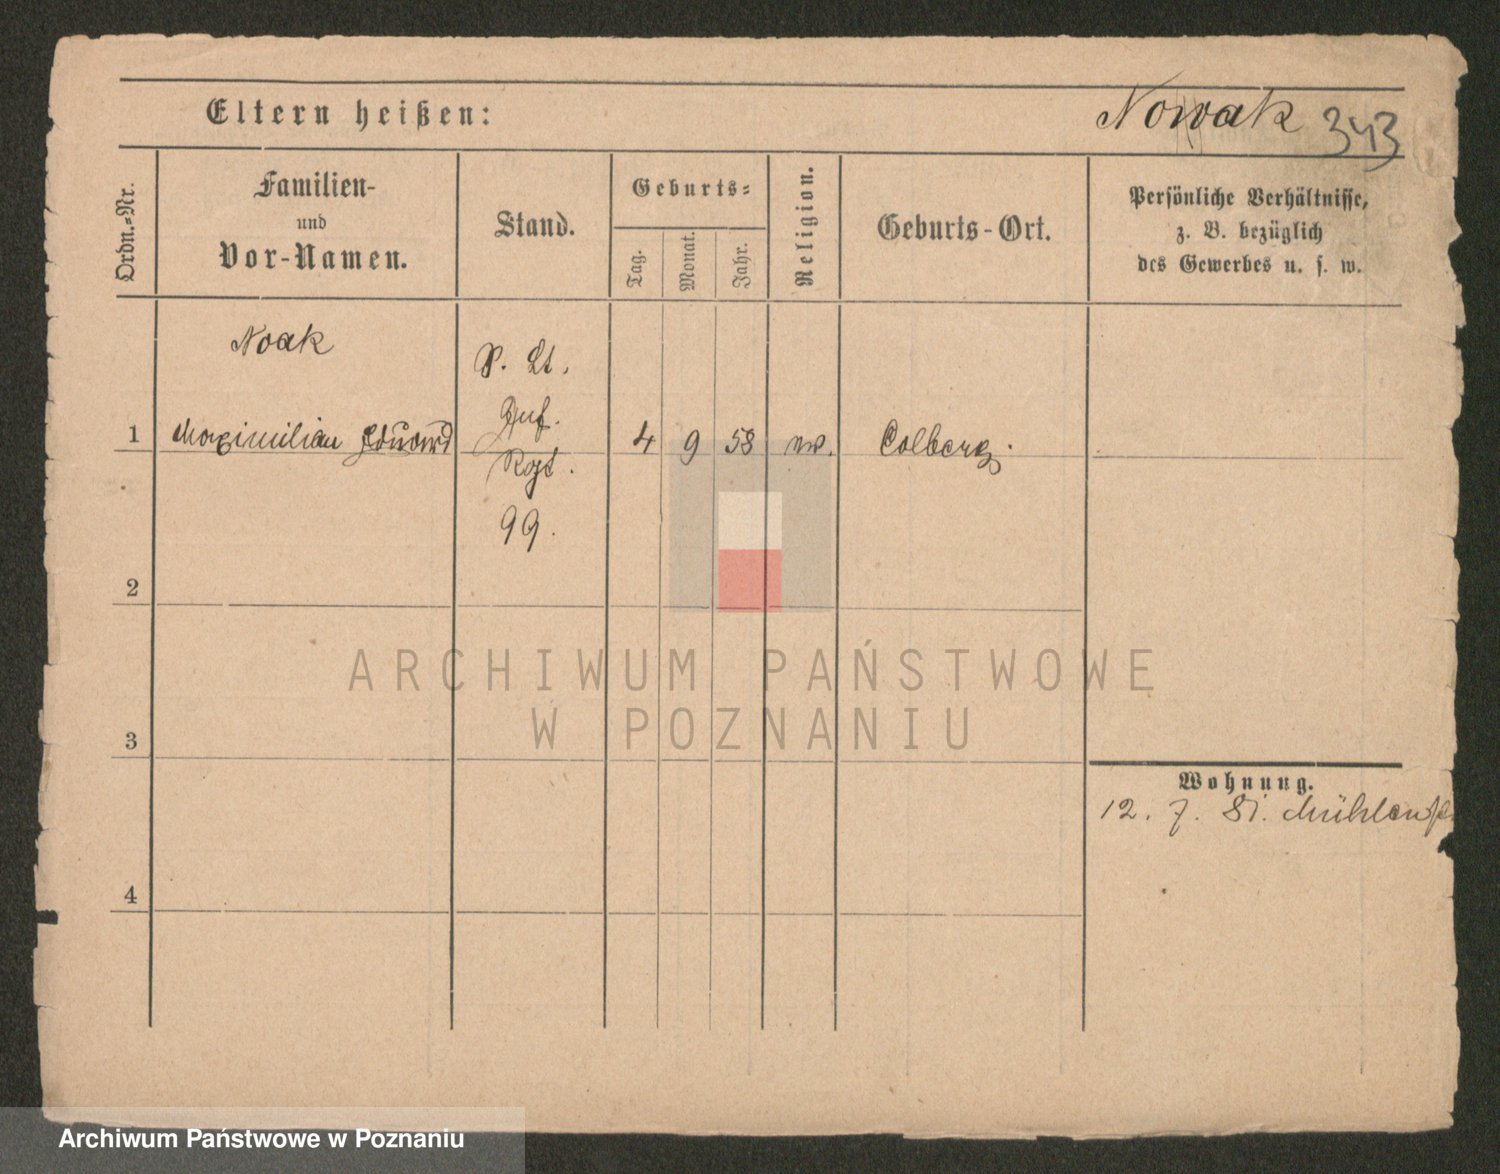 Eltern heißen:
Nowak 343
Ordn.-Nr.
Familien-
und
Vor-Namen.
Stand.
Geburts-
Tag.
Monat.
Jahr.
Religion.
Geburts-Ort.
Persönliche Verhältnisse,
z. B. bezüglich
des Gewerbes u. s. w.
Noak
1 Maximilian Eduard
P. Lt.
Inf.
Rgt.
99.
4 9 58 ev. Colberg.
2
3
4
Wohnung.
12. 7. 81. Mühlenst
ARCHIWUM PAŃSTWOWE
W POZNANIU
Archiwum Państwowe w Poznaniu